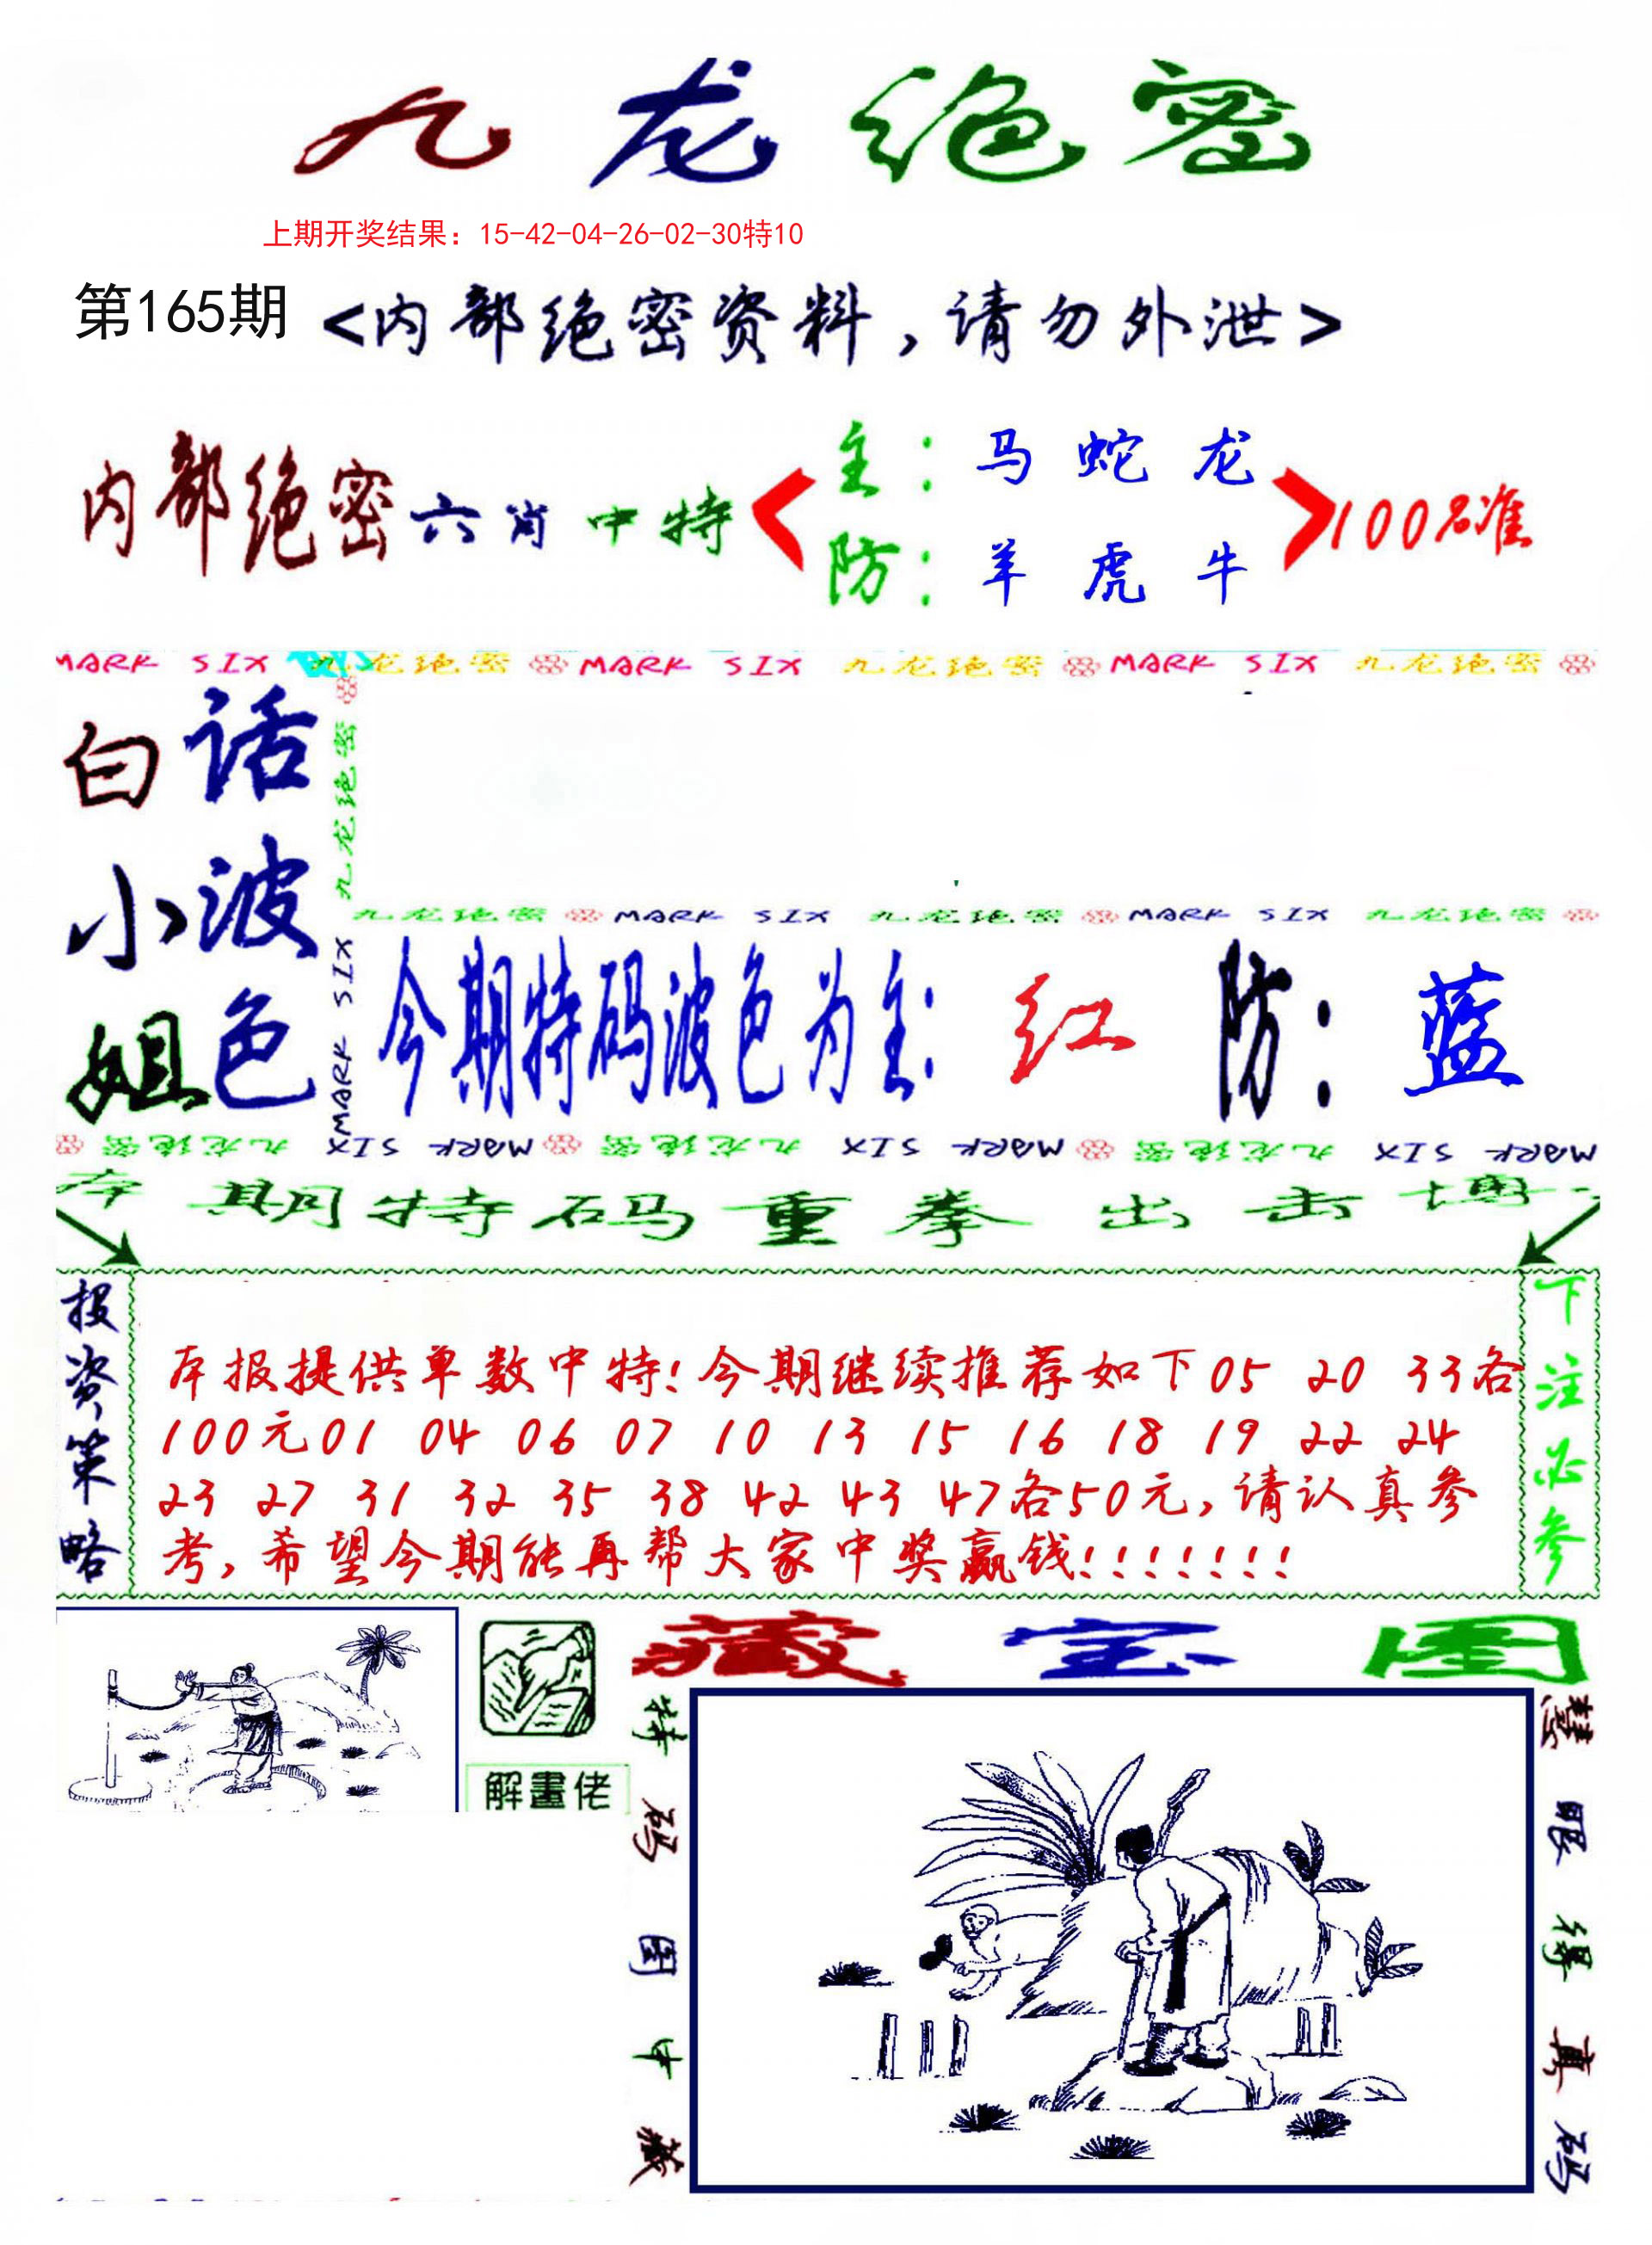 九龙绝密
上期开奖结果：15-42-04-26-02-30特10
第165期 <内部绝密资料,请勿外泄>
内部绝密六肖中特
主：马 蛇 龙
防：羊 虎 牛
100%准
MARK SIX 九龙绝密 MARK SIX 九龙绝密 MARK SIX 九龙绝密
白小姐
话波色
九龙绝密 MARK SIX
九龙绝密 MARK SIX 九龙绝密 MARK SIX 九龙绝密
今期特码波色为主: 红 防: 蓝
MARK SIX 九龙绝密 MARK SIX 九龙绝密 MARK SIX 九龙绝密
本期特码重拳出击博
投资策略
本报提供单数中特!今期继续推荐如下05 20 33各
100元01 04 06 07 10 13 15 16 18 19 22 24
23 27 31 32 35 38 42 43 47各50元,请认真参
考,希望今期能再帮大家中奖赢钱!!!!!!!
下注必参
解畫佬
藏宝图
特码图中藏
慧眼得真码